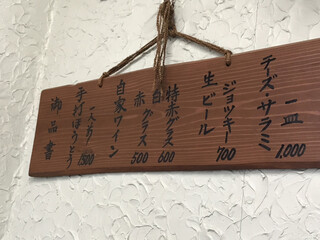 一皿
テーズ・サラミ 1.000
ジョッキー
生ビール 700
特赤グラス 600
白
赤 グラス 500
自家ワイン
一人お り
手打ほうとう 1500
御品書